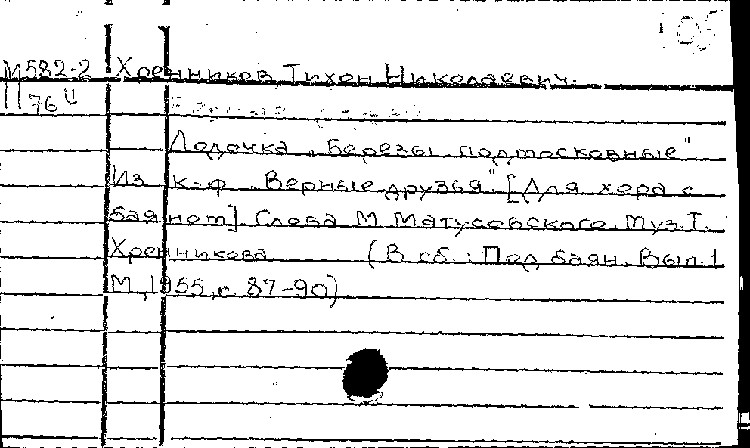 105
М582-2 Хренников, Тихон Николаевич.
76
Лодочка, „Березы подмосковные"
Из к-ф „Верные друзья" [Для хора с
баяном] Слова М Матусовского. Муз. Т.
Хренникова (В сб.: Под баян. Вып. 1
М, 1955, с. 87-90)